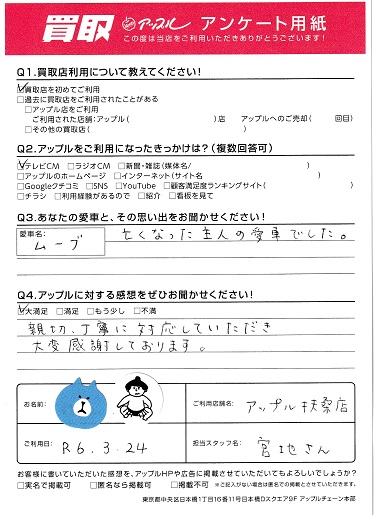 買取 アップル アンケート用紙
この度は当店をご利用いただきありがとうございます!
Q1.買取店利用について教えてください!
☑買取店を初めてご利用
□過去に買取店をご利用されたことがある
□アップル店をご利用
ご利用された店舗:アップル( )店 アップルへのご売却( 回目)
□その他の買取店( )
Q2.アップルをご利用になったきっかけは?(複数回答可)
☑テレビCM □ラジオCM □新聞・雑誌(媒体名/ )
□アップルのホームページ □インターネット(サイト名 )
□Googleクチコミ □SNS □YouTube □顧客満足度ランキングサイト( )
□チラシ □利用経験があるので □紹介 □看板を見て
Q3.あなたの愛車と、その思い出をお聞かせください!
愛車名: ムーブ
亡くなった主人の愛車でした。
Q4.アップルに対する感想をぜひお聞かせください!
☑大満足 □満足 □もう少し □不満
親切、丁寧に対応していただき
大変感謝しております。
お名前:
ご利用店舗名: アップル扶桑店
ご利用日: R6.3.24
担当スタッフ名: 宮地さん
お客様に書いていただいた感想を、アップルHPや広告に掲載させていただいてもよろしいでしょうか?
□実名で掲載可 □匿名なら掲載可 □掲載不可 ※ご記入がない場合は匿名での掲載とさせていただきます。
東京都中央区日本橋1丁目16番11号日本橋Dスクエア9F アップルチェーン本部